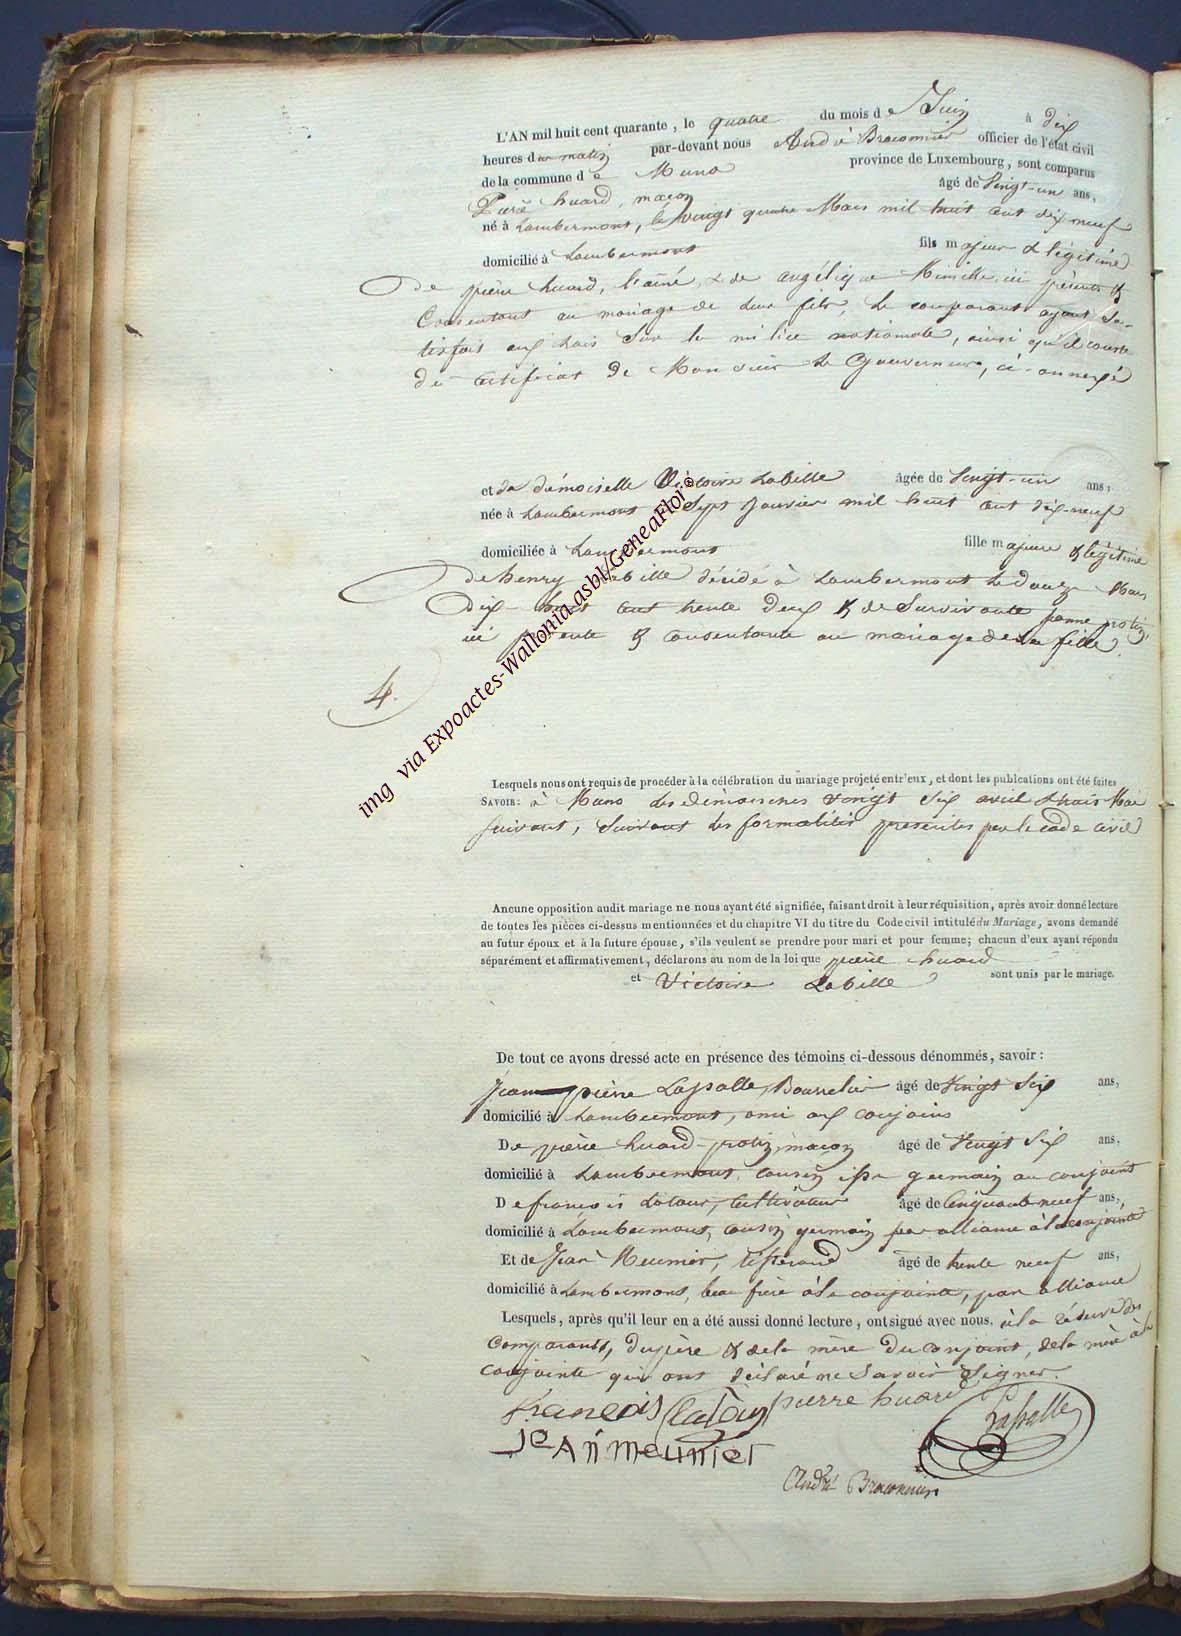 L'AN mil huit cent quarante, le quatre du mois de Juin à dix
heures du matin par-devant nous André Braconnier officier de l'état civil
de la commune de Muno province de Luxembourg, sont comparus
Pierre huard, maçon âgé de Vingt-un ans,
né à Lambermont, le vingt quatre Mars mil huit cent dix neuf
domicilié à Lambermont fils majeur & légitime
de pierre huard, l'ainé, & de angélique ici présents &
Consentant au mariage de leur fils, le comparant ayant sa-
tisfait aux Lois Sur la milice nationale, ainsi qu'il conste
du certificat de Monsieur le Gouverneur, ci-annexé
et da démoiselle Victoire Labille âgée de Vingt-un ans,
née à Lambermont Sept Janvier mil huit cent dix-neuf
domiciliée à Lambermont fille majeure & légitime
de henry Labille décédé à Lambermont le douze Mars
dix-huit cent trente deux & de Survivante
ici présente & consentante au mariage de sa fille.
4.
img via Expoactes-Wallonia asbl/GeneaFloi ©
Lesquels nous ont requis de procéder à la célébration du mariage projeté entr'eux, et dont les publcations ont été faites
SAVOIR: à Muno les démanches vingt six avril & trois Mai
suivant, Suivant les formalités prescrites par le code civil
Aucune opposition audit mariage ne nous ayant été signifiée, faisant droit à leur réquisition, après avoir donné lecture
de toutes les pièces ci-dessus mentionnées et du chapitre VI du titre du Code civil intitulé du Mariage, avons demandé
au futur époux et à la future épouse, s'ils veulent se prendre pour mari et pour femme; chacun d'eux ayant répondu
séparément et affirmativement, déclarons au nom de la loi que pierre huard
et Victoire Labille sont unis par le mariage.
De tout ce avons dressé acte en présence des témoins ci-dessous dénommés, savoir:
Jean pierre Lassalle, Bourrelier âgé de Vingt Six ans,
domicilié à Lambermont, ami aux conjoins
De pierre huard-protin, maçon âgé de Vingt Six ans,
domicilié à Lambermont, cousin germain au conjoint
De françois Latour, Cultivateur âgé de Cinquante neuf ans,
domicilié à Lambermont, cousin germain par alliance à la conjointe
Et de Jean Meunier, tisserand âgé de trente neuf ans,
domicilié à Lambermont, beau frère à la conjointe, par alliance
Lesquels, après qu'il leur en a été aussi donné lecture, ont signé avec nous. à la réserve des
Comparants, du père & de la mère du conjoint, de la mère à la
conjointe qui ont déclaré ne Savoir Signer.
François Latour pierre huard Lassalle
JEAN meunier
André Braconnier